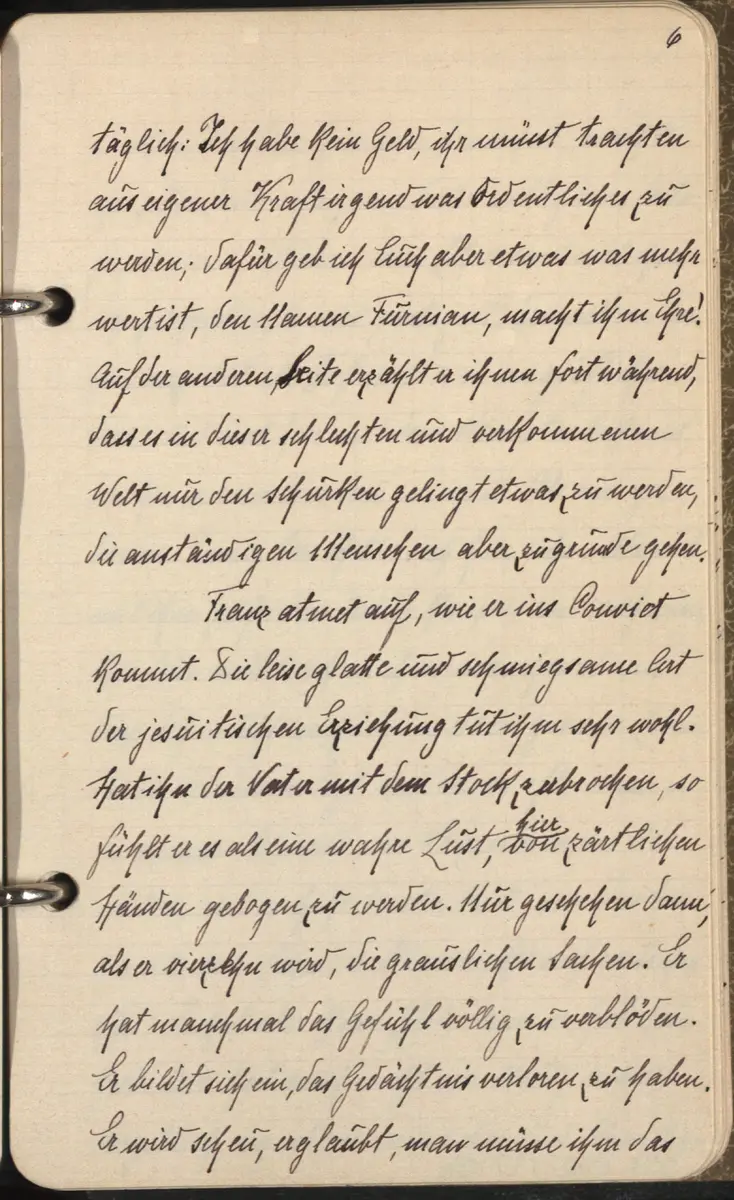 6
täglich: Ich habe kein Geld, ihr müsst trachten
aus eigener Kraft irgend was Ordentliches zu
werden; dafür geb ich Euch aber etwas was mehr
wert ist, den Namen Furnian, macht ihm Ehre!
Auf der anderen Seite erzählt er ihnen fortwährend,
dass es in dieser schlechten und verkommenen
Welt nur den Schurken gelingt etwas zu werden,
die anständigen Menschen aber zugrunde gehen.
Franz atmet auf, wie er ins Convict
kommt. Die leise glatte und schmiegsame Art
der jesuitischen Erziehung tut ihm sehr wohl.
Hat ihn der Vater mit dem Stock zerbrochen, so
fühlt er es als eine wahre Lust, hier von zärtlichen
Händen gebogen zu werden. Nur geschehen dann,
als er vierzehn wird, die grauslichen Sachen. Er
hat manchmal das Gefühl völlig zu verblöden.
Er bildet sich ein, das Gedächtnis verloren zu haben.
Er wird scheu, er glaubt, man müsse ihm das